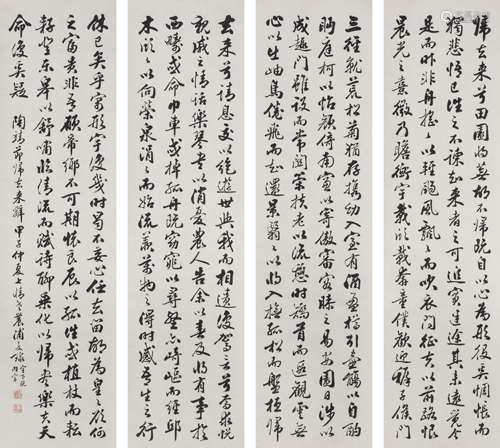 歸去來兮田園將蕪胡不歸既自以心為形役奚惆悵而
獨悲悟已往之不諫知來者之可追實迷途其未遠覺今
是而昨非舟搖搖以輕颺風飄飄而吹衣問征夫以前路恨
晨光之熹微乃瞻衡宇載欣載奔童僕歡迎稚子候門
三徑就荒松菊猶存攜幼入室有酒盈樽引壺觴以自酌
眄庭柯以怡顏倚南窗以寄傲審容膝之易安園日涉以
成趣門雖設而常關策扶老以流憩時矯首而遐觀雲無
心以出岫鳥倦飛而知還景翳翳以將入撫孤松而盤桓歸
去來兮請息交以絕遊世與我而相違復駕言兮焉求悅
親戚之情話樂琴書以消憂農人告余以春及將有事於
西疇或命巾車或棹孤舟既窈窕以尋壑亦崎嶇而經邱
木欣欣以向榮泉涓涓而始流羨萬物之得時感吾生之行
休已矣乎寓形宇內復幾時曷不委心任去留胡為皇皇欲何
之富貴非吾願帝鄉不可期懷良辰以孤往或植杖而耘
耔登東皋以舒嘯臨清流而賦詩聊乘化以歸盡樂夫天
命復奚疑 陶靖節歸去來辭 甲子仲夏